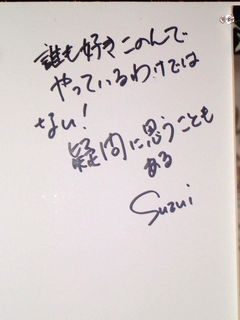 誰も好きこのんで
やっているわけでは
ない!
疑問に思うことも
ある
Suzui